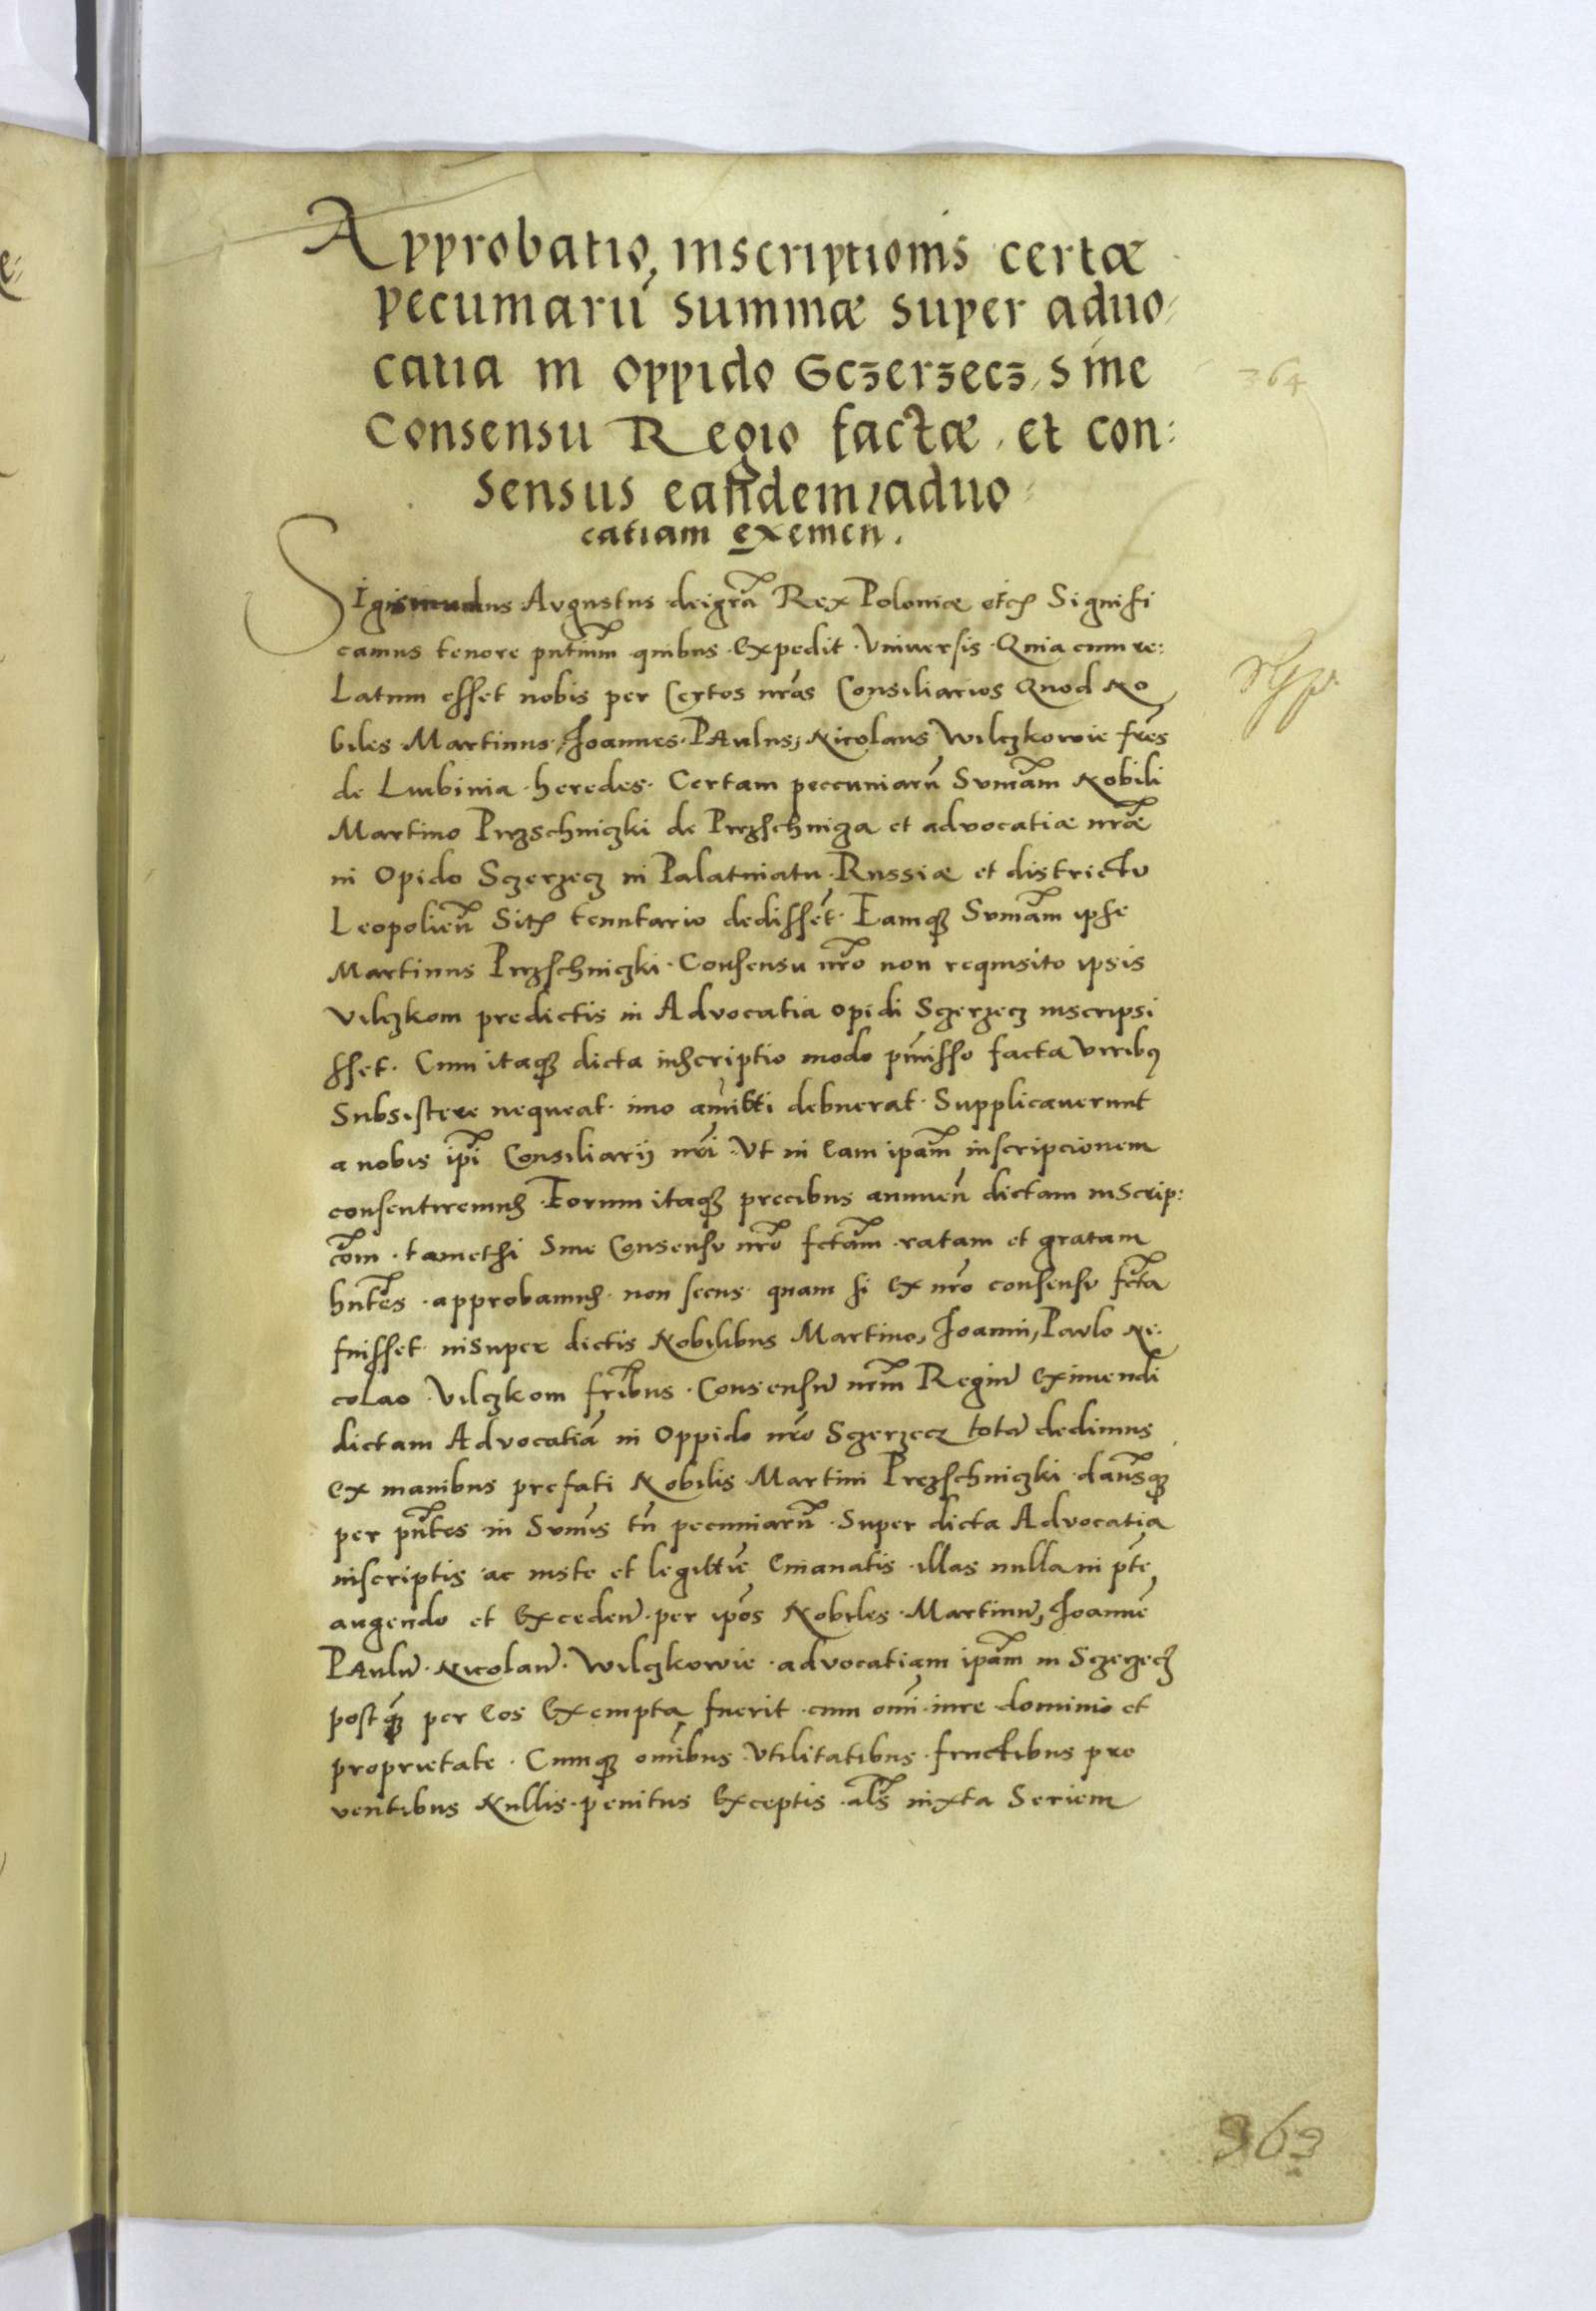 Approbatio, inscriptionis certæ
pecuniarũ summæ super aduo
catia in oppido Sczerzecz, sine
Consensu Regio factæ, et con:
sensus eandem aduo
catiam exemen.
364
Sigismundus Augustus dei gr̃a Rex Poloniæ etc̃ Signifi
camus tenore pñtium quibus expedit Vniuersis Quia cum re:
Latum esset nobis per Certos nr̃os Consiliarios Quod No
biles Martinus, Joannes, PAulus, Nicolaus Wilczkowie fr̃es
de Lubinia heredes Certam peccuniarũ Sum̃am Nobili
Martino Przschniczki de Przschnicza et advocatiæ nr̃æ
in Opido Sczerzecz in Palatinatu Russiæ et districtu
Leopolieñ Sitæ tenutario dedisseñt Eamq̃ Sum̃am ipse
Martinus Przschniczki Consensu nr̃o non requisito ipsis
Vilczkom predictis in Advocatia opidi Sczerzecz inscripsi
sset. Cum itaq̃ dicta inscriptio modo pm̃isso facta Viribus
Subsistere nequeat imo am̃itti debuerat Supplicaverunt
a nobis ip̃i Consiliarij nr̃i Vt in Eam ip̃am inscripcionem
consentiremus Eorum itaq̃ precibus annueñ dictam inscrip:
cõm tametsi Sine Consensu nr̃o fctãm ratam et gratam
hñtes approbamus non secus quam si Ex nr̃o consensu fctã
fuisset inSuper dictis Nobilibus Martino, Joanni, Paulo Ni
coLao Vilczkom fr̃ibus Consensũ nr̃m Regiũ Eximendi
dictam Advocatiã in Oppido nr̃o Sczerzecz totã dedimus
Ex manibus prefati Nobilis Martini Przschniczki dam̃usq̃
per pñtes in Sum̃is tñ pecuniarũ Super dicta Advocatia
inscriptis ac iuste et legittie Emanatis illas nulla in pt̃e
augendo et Excedeñ per ip̃os Nobiles Martinũ, Joannẽ
PAulũ Nicolaũ Wilczkowie advocatiam ip̃am in Sczerzecz
postq̃ per Eos Exempta fuerit cum om̃i iure dominio et
proprietate Cumq̃ om̃ibus Vtilitatibus fructibus pro
ventibus Nullis penitus Exceptis al̃s iuxta Seriem
363